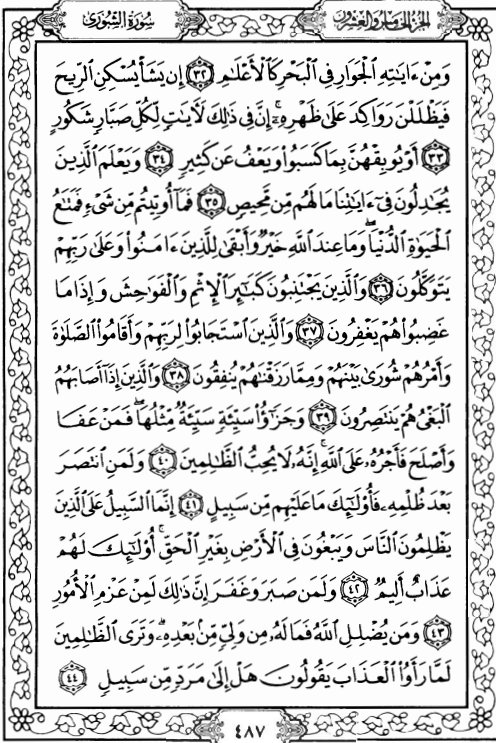 سُورَةُ الشُّورَىٰ
الجُزْءُ الخَامِسُ وَالعِشْرُونَ
وَمِنْ ءَايَٰتِهِ ٱلْجَوَارِ فِي ٱلْبَحْرِ كَٱلْأَعْلَٰمِ ٣٢ إِن يَشَأْ يُسْكِنِ ٱلرِّيحَ
فَيَظْلَلْنَ رَوَاكِدَ عَلَىٰ ظَهْرِهِۦٓ ۚ إِنَّ فِي ذَٰلِكَ لَأٓيَٰتٍ لِّكُلِّ صَبَّارٍ شَكُورٍ
٣٣ أَوْ يُوبِقْهُنَّ بِمَا كَسَبُوا۟ وَيَعْفُ عَن كَثِيرٍ ٣٤ وَيَعْلَمَ ٱلَّذِينَ
يُجَٰدِلُونَ فِىٓ ءَايَٰتِنَا مَا لَهُم مِّن مَّحِيصٍ ٣٥ فَمَآ أُوتِيتُم مِّن شَىْءٍ فَمَتَٰعُ
ٱلْحَيَوٰةِ ٱلدُّنْيَا ۖ وَمَا عِندَ ٱللَّهِ خَيْرٌ وَأَبْقَىٰ لِلَّذِينَ ءَامَنُوا۟ وَعَلَىٰ رَبِّهِمْ
يَتَوَكَّلُونَ ٣٦ وَٱلَّذِينَ يَجْتَنِبُونَ كَبَٰٓئِرَ ٱلْإِثْمِ وَٱلْفَوَٰحِشَ وَإِذَا مَا
غَضِبُوا۟ هُمْ يَغْفِرُونَ ٣٧ وَٱلَّذِينَ ٱسْتَجَابُوا۟ لِرَبِّهِمْ وَأَقَامُوا۟ ٱلصَّلَوٰةَ
وَأَمْرُهُمْ شُورَىٰ بَيْنَهُمْ وَمِمَّا رَزَقْنَٰهُمْ يُنفِقُونَ ٣٨ وَٱلَّذِينَ إِذَآ أَصَابَهُمُ
ٱلْبَغْىُ هُمْ يَنتَصِرُونَ ٣٩ وَجَزَٰٓؤُا۟ سَيِّئَةٍ سَيِّئَةٌ مِّثْلُهَا ۖ فَمَنْ عَفَا
وَأَصْلَحَ فَأَجْرُهُۥ عَلَى ٱللَّهِ ۚ إِنَّهُۥ لَا يُحِبُّ ٱلظَّٰلِمِينَ ٤٠ وَلَمَنِ ٱنتَصَرَ
بَعْدَ ظُلْمِهِۦ فَأُو۟لَٰٓئِكَ مَا عَلَيْهِم مِّن سَبِيلٍ ٤١ إِنَّمَا ٱلسَّبِيلُ عَلَى ٱلَّذِينَ
يَظْلِمُونَ ٱلنَّاسَ وَيَبْغُونَ فِي ٱلْأَرْضِ بِغَيْرِ ٱلْحَقِّ ۚ أُو۟لَٰٓئِكَ لَهُمْ
عَذَابٌ أَلِيمٌ ٤٢ وَلَمَن صَبَرَ وَغَفَرَ إِنَّ ذَٰلِكَ لَمِنْ عَزْمِ ٱلْأُمُورِ
٤٣ وَمَن يُضْلِلِ ٱللَّهُ فَمَا لَهُۥ مِن وَلِىٍّ مِّنۢ بَعْدِهِۦ ۗ وَتَرَى ٱلظَّٰلِمِينَ
لَمَّا رَأَوُا۟ ٱلْعَذَابَ يَقُولُونَ هَلْ إِلَىٰ مَرَدٍّ مِّن سَبِيلٍ ٤٤
٤٨٧